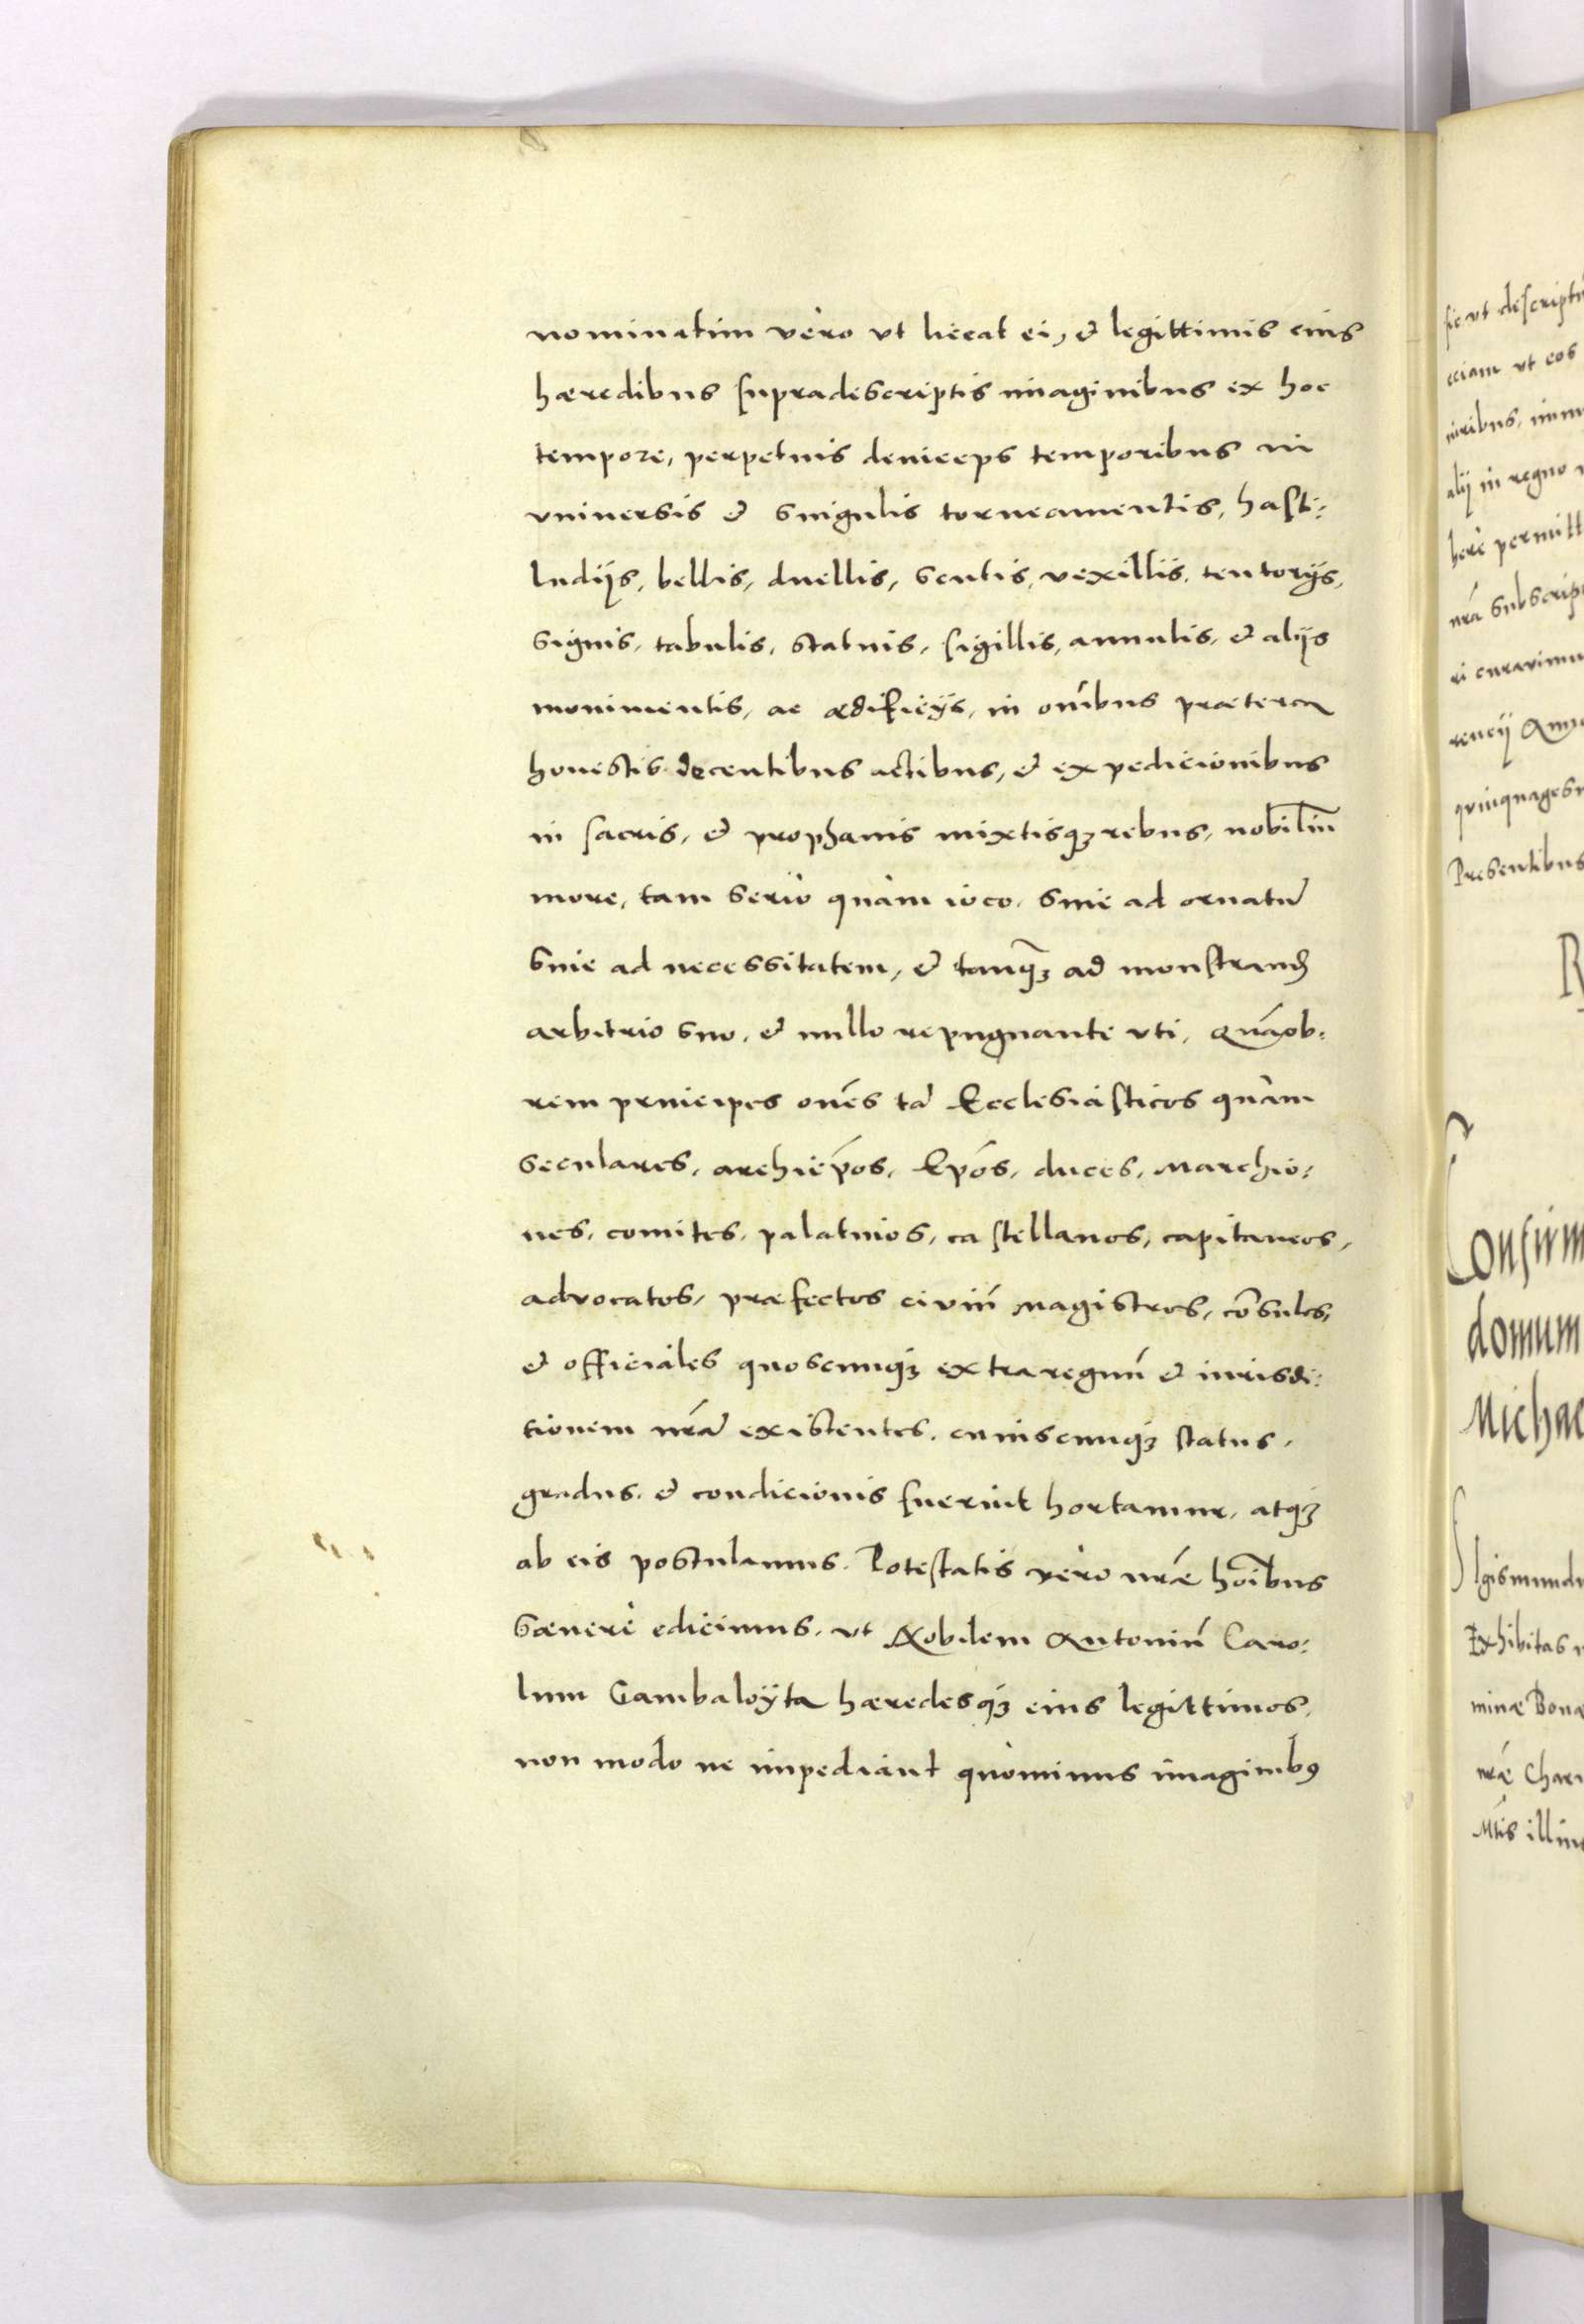 nominatim vero vt liceat ei, & legittimis eius
hæredibus supradescriptis imaginibus ex hoc
tempore, perpetuis deinceps temporibus in
vniuersis & singulis torneamentis, hasti:
ludijs, bellis, duellis, scutis, vexillis, tentorijs,
signis, tabulis, statuis, sigillis, annulis, & alijs
monimentis, ac ædificijs, in oĩbus præterea
honestis decentibus actibus, & expedicionibus
in sacris, & prophanis mixtisqꝫ rebus, nobiliũ
more, tam serio quàm ioco, siue ad ornatũ
siue ad necessitatem, & tanqꝫ̃ ad monstrand
arbitrio suo, & nullo repugnante vti, Quãob:
rem principes oẽs tã Ecclesiasticos quàm
seculares, archiep̃os, Ep̃os, duces, Marchio:
nes, comites, palatinos, castellanos, capitaneos,
advocatos, præfectos civiũ Magistros, cõsules,
& officiales quoscunqꝫ extra regnũ & iurisdi:
tionem nrã existentes, cuiuscunqꝫ status,
gradus, & condicionis fuerint hortamur, atqꝫ
ab eis postulamus. Potestatis vero nræ̃ hoĩbus
sævere edicimus, vt Nobilem Antoniũ Caro:
lum Gambaloÿta hæredesqꝫ eius legittimos,
non modo ne impediant quominus imaginibꝰ
sic vt descript
eciam vt eos
iuribus, imm
alij in regno
bere permitt
nrã subscrip
ri curavimu
rencij
quinquages
Presentibus
R
Confirm
domum
Michae
Sigismundu
Exhibitas
minæ Bonæ
nræ̃ Chari
Mtis illiu